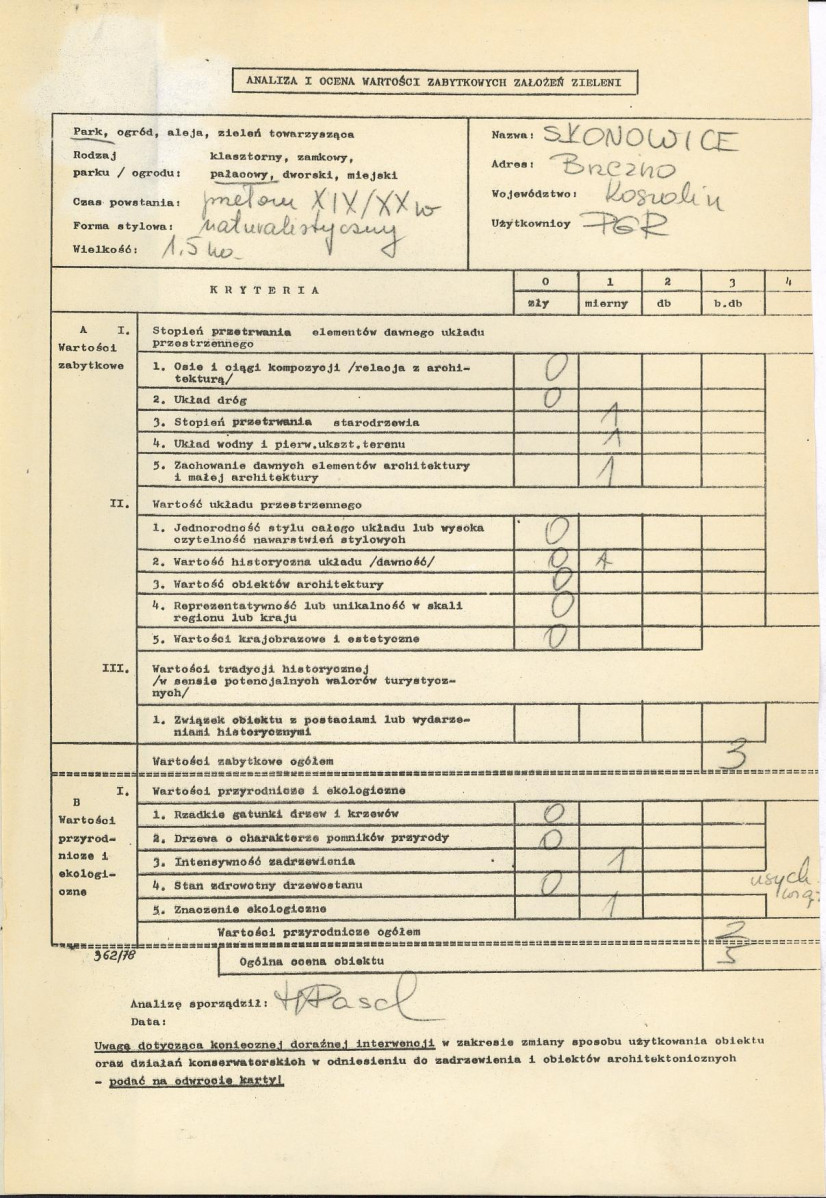 ANALIZA I OCENA WARTOŚCI ZABYTKOWYCH ZAŁOŻEŃ ZIELENI
Park, ogród, aleja, zieleń towarzysząca
Rodzaj klasztorny, zamkowy,
parku / ogrodu: pałacowy, dworski, miejski
Czas powstania: przełom XIX/XX w
Forma stylowa: naturalistyczny
Wielkość: 1,5 ha
Nazwa: SŁONOWICE
Adres: Brzeżno
Województwo: Koszalin
Użytkownicy PGR
KRYTERIA 0 1 2 3 4
zły mierny db b.db
A I. Stopień przetrwania elementów dawnego układu
Wartości przestrzennego
zabytkowe
1. Osie i ciągi kompozycji /relacja z archi-
tekturą/ 0
2. Układ dróg 0
3. Stopień przetrwania starodrzewia 1
4. Układ wodny i pierw.ukszt.terenu 1
5. Zachowanie dawnych elementów architektury
i małej architektury 1
II. Wartość układu przestrzennego
1. Jednorodność stylu całego układu lub wysoka
czytelność nawarstwień stylowych 0
2. Wartość historyczna układu /dawność/ 0 1
3. Wartość obiektów architektury 0
4. Reprezentatywność lub unikalność w skali
regionu lub kraju 0
5. Wartości krajobrazowe i estetyczne 0
III. Wartości tradycji historycznej
/w sensie potencjalnych walorów turystycz-
nych/
1. Związek obiektu z postaciami lub wydarze-
niami historycznymi
Wartości zabytkowe ogółem 3
B I. Wartości przyrodnicze i ekologiczne
Wartości
przyrod-
nicze i
ekologi-
czne
1. Rzadkie gatunki drzew i krzewów 0
2. Drzewa o charakterze pomników przyrody 0
3. Intensywność zadrzewienia 1
4. Stan zdrowotny drzewostanu 0 usych.
5. Znaczenie ekologiczne 1
Wartości przyrodnicze ogółem 2
362/78
Ogólna ocena obiektu 5
Analizę sporządził:
Data:
Uwagę dotyczącą koniecznej doraźnej interwencji w zakresie zmiany sposobu użytkowania obiektu
oraz działań konserwatorskich w odniesieniu do zadrzewienia i obiektów architektonicznych
- podać na odwrocie karty!